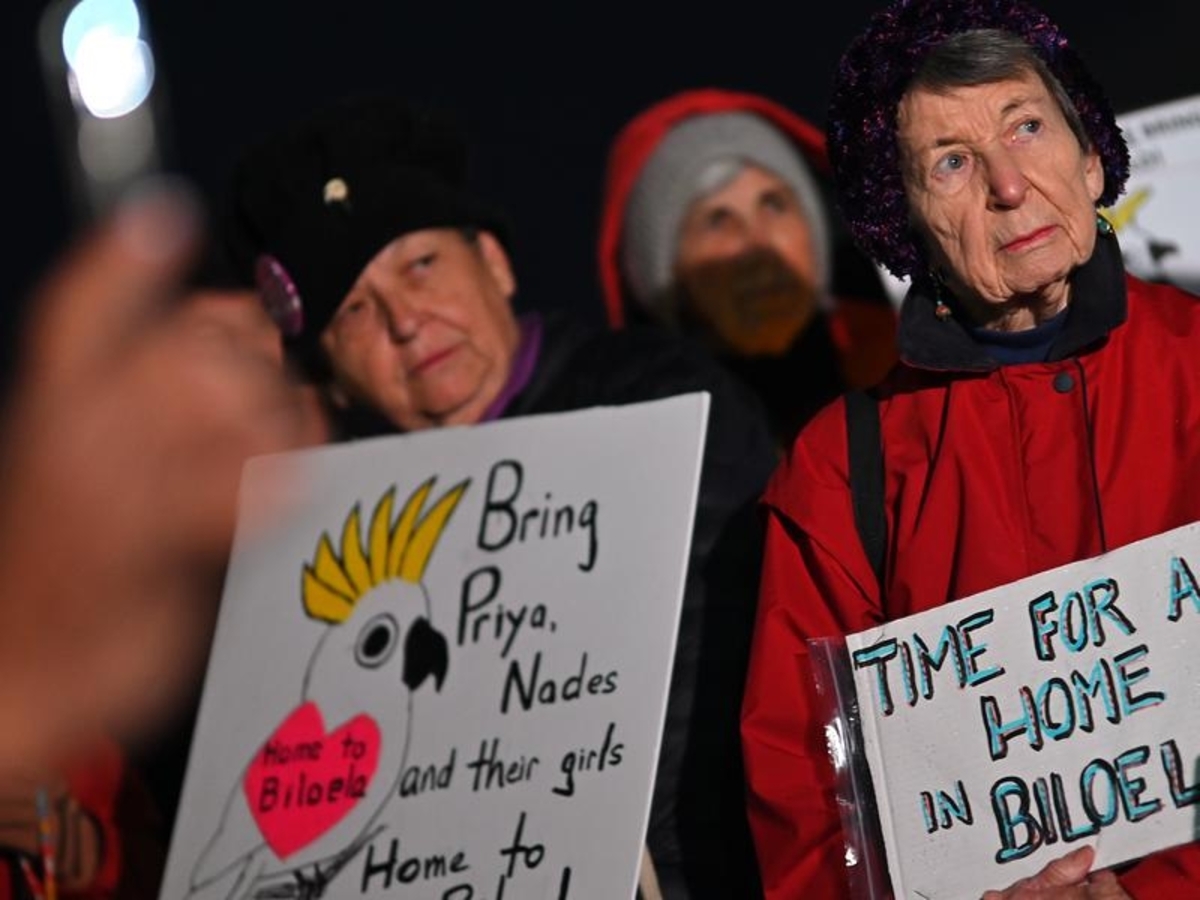 Bring
Priya,
Nades
and their girls
Home to
Home to
Biloela
TIME FOR A
HOME
IN BILOEL
BRING